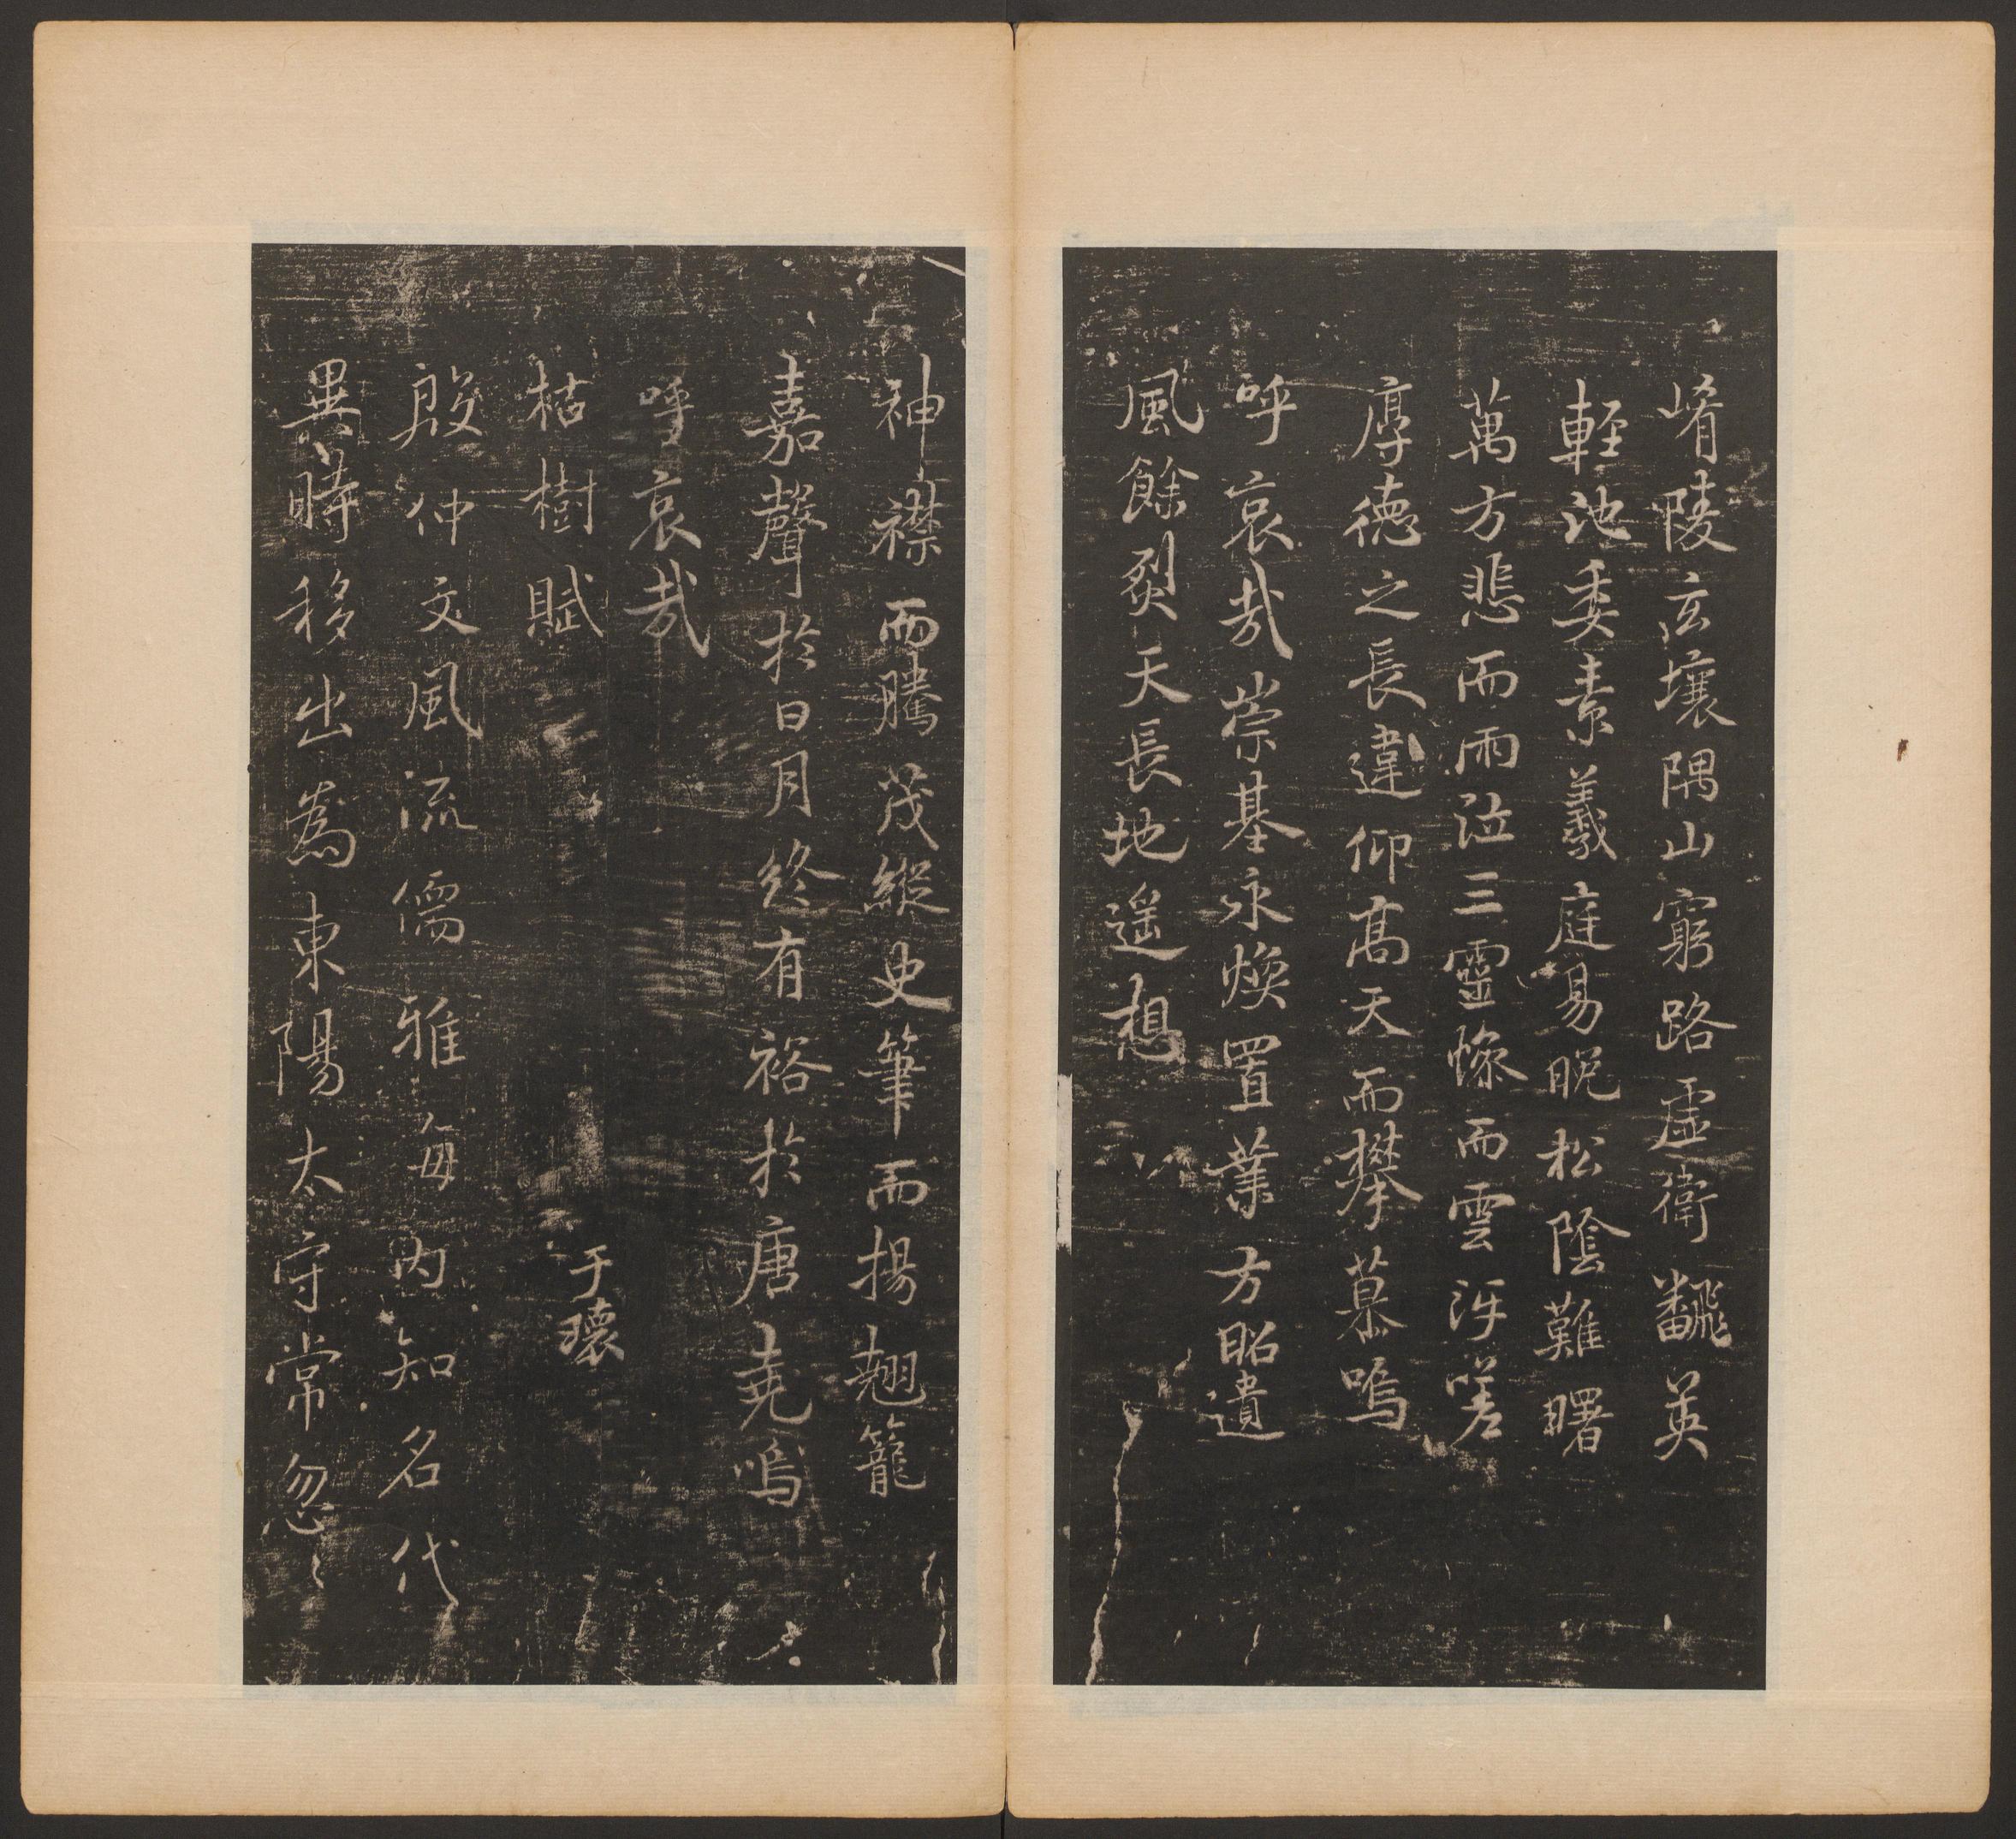 崤陵玄壤隅山窮路虛衛飜英
輊池委素羲庭易晩松陰難曙
萬方悲而雨泣三靈慘而雲沍嗟
厚德之長違仰髙天而攀慕嗚
呼哀哉崇基永煥置業方昭遺
風餘烈天長地遥想
神襟而騰茂縱史筆而揚翹籠
嘉聲於日月終有裕於唐堯嗚
呼哀哉
枯樹賦 于瓌
殷仲文風流儒雅每内知名代
異時移出為東陽太守常忽〻